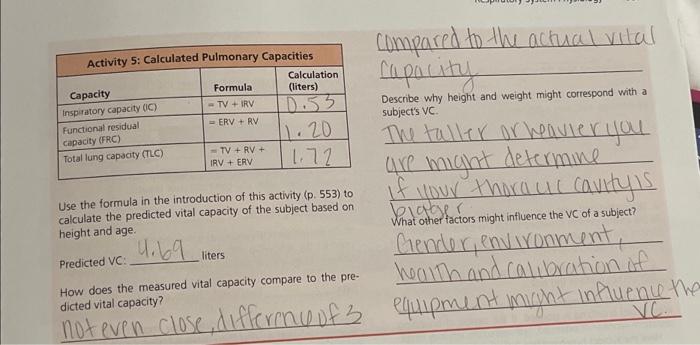 Activity 5: Calculated Pulmonary Capacities
Capacity
Formula
Calculation (liters)
Inspiratory capacity (IC)
= TV + IRV
0.53
Functional residual capacity (FRC)
= ERV + RV
1.20
Total lung capacity (TLC)
= TV + RV + IRV + ERV
1.72
Use the formula in the introduction of this activity (p. 553) to
calculate the predicted vital capacity of the subject based on
height and age.
Predicted VC: 4.69 liters
How does the measured vital capacity compare to the pre-
dicted vital capacity?
not even close, difference of 3
compared to the actual vital
capacity
Describe why height and weight might correspond with a
subject's VC.
The taller or heavier you
are might determine
if your thoracic cavity is
bigger.
What other factors might influence the VC of a subject?
Gender, environment,
health and calibration of
equipment might influence the
VC.